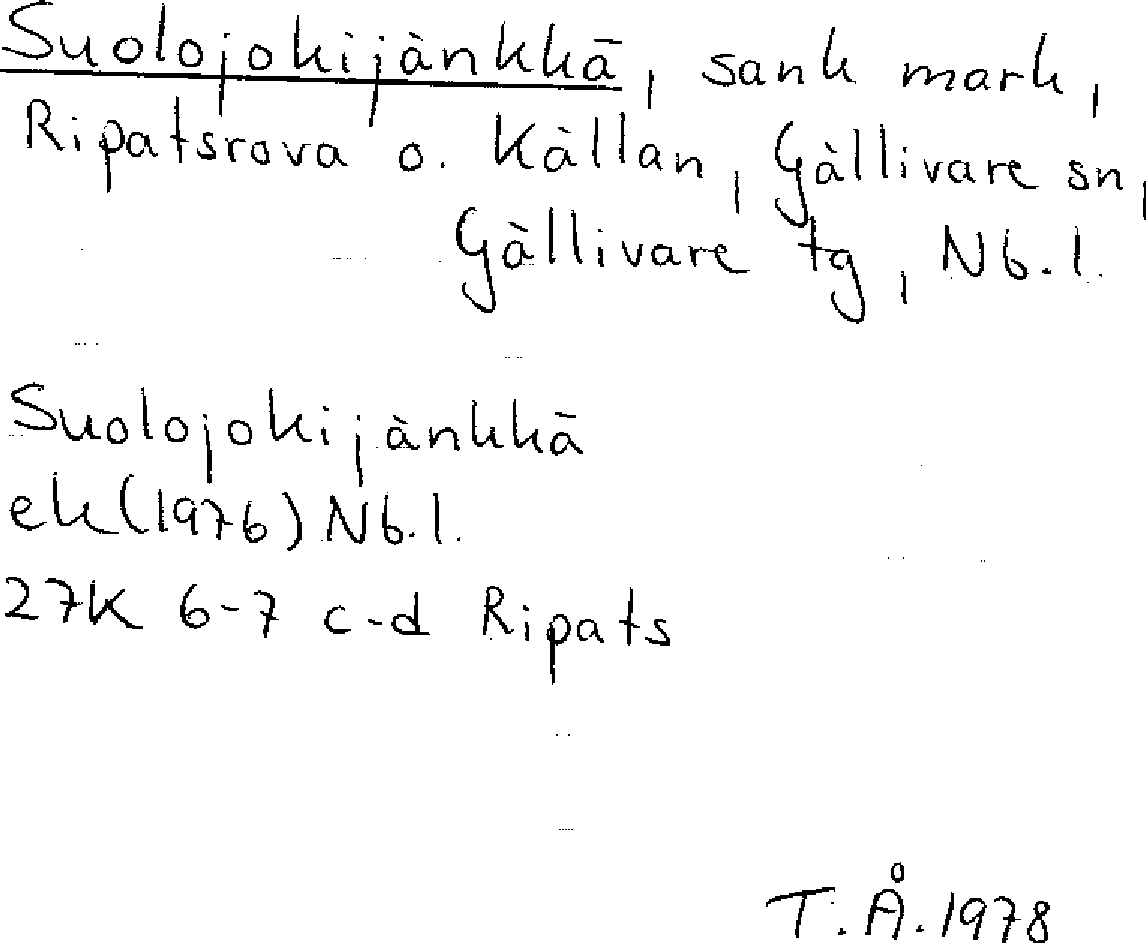 Suolojokijänkkä, sank mark,
Ripatsrova o. Källan, Gällivare sn,
Gällivare tg, Nb.l.
Suolojokijänkkä
ek(1976) Nb.l.
27K 6-7 c-d Ripats
T.Å.1978